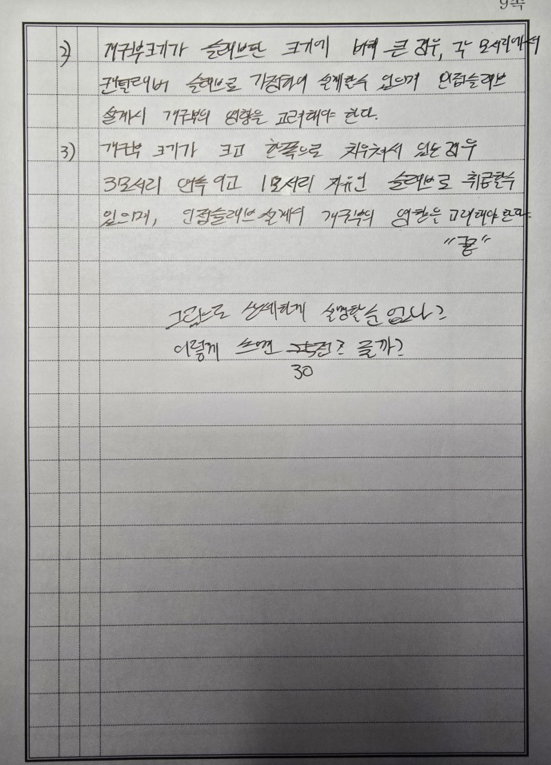 9쪽
2) 개구부크기가 슬래브판 크기에 비해 큰 경우, 각 모서리에서
캔틸레버 슬래브로 가정하여 설계할수 있으며 인접슬래브
설계시 개구부의 영향을 고려해야 한다.
3) 개구부 크기가 크고 한쪽으로 치우쳐서 있는경우
3모서리 연속이고 1모서리 자유인 슬래브로 취급할수
있으며, 인접슬래브 설계시 개구부의 영향을 고려해야 한다.
"끝"
그림으로 상세하게 설명할순 없나?
이렇게 쓰면 점? 줄까?
30